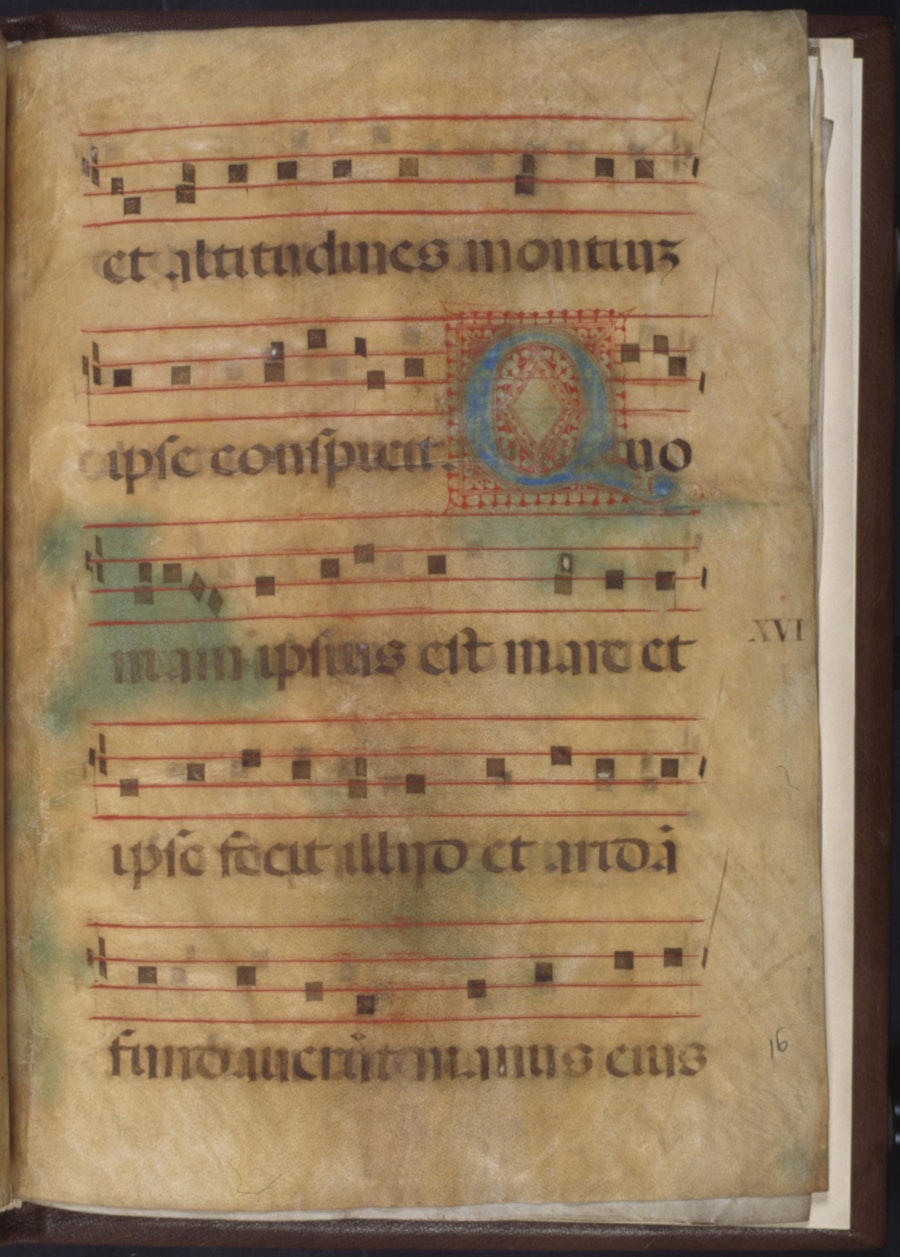 et altitudines montiuʒ
ipse conspicit. Quo
niam ipsius est mare et
XVI
ipse fecit illud et aridā
fundauerūt manus eius
16